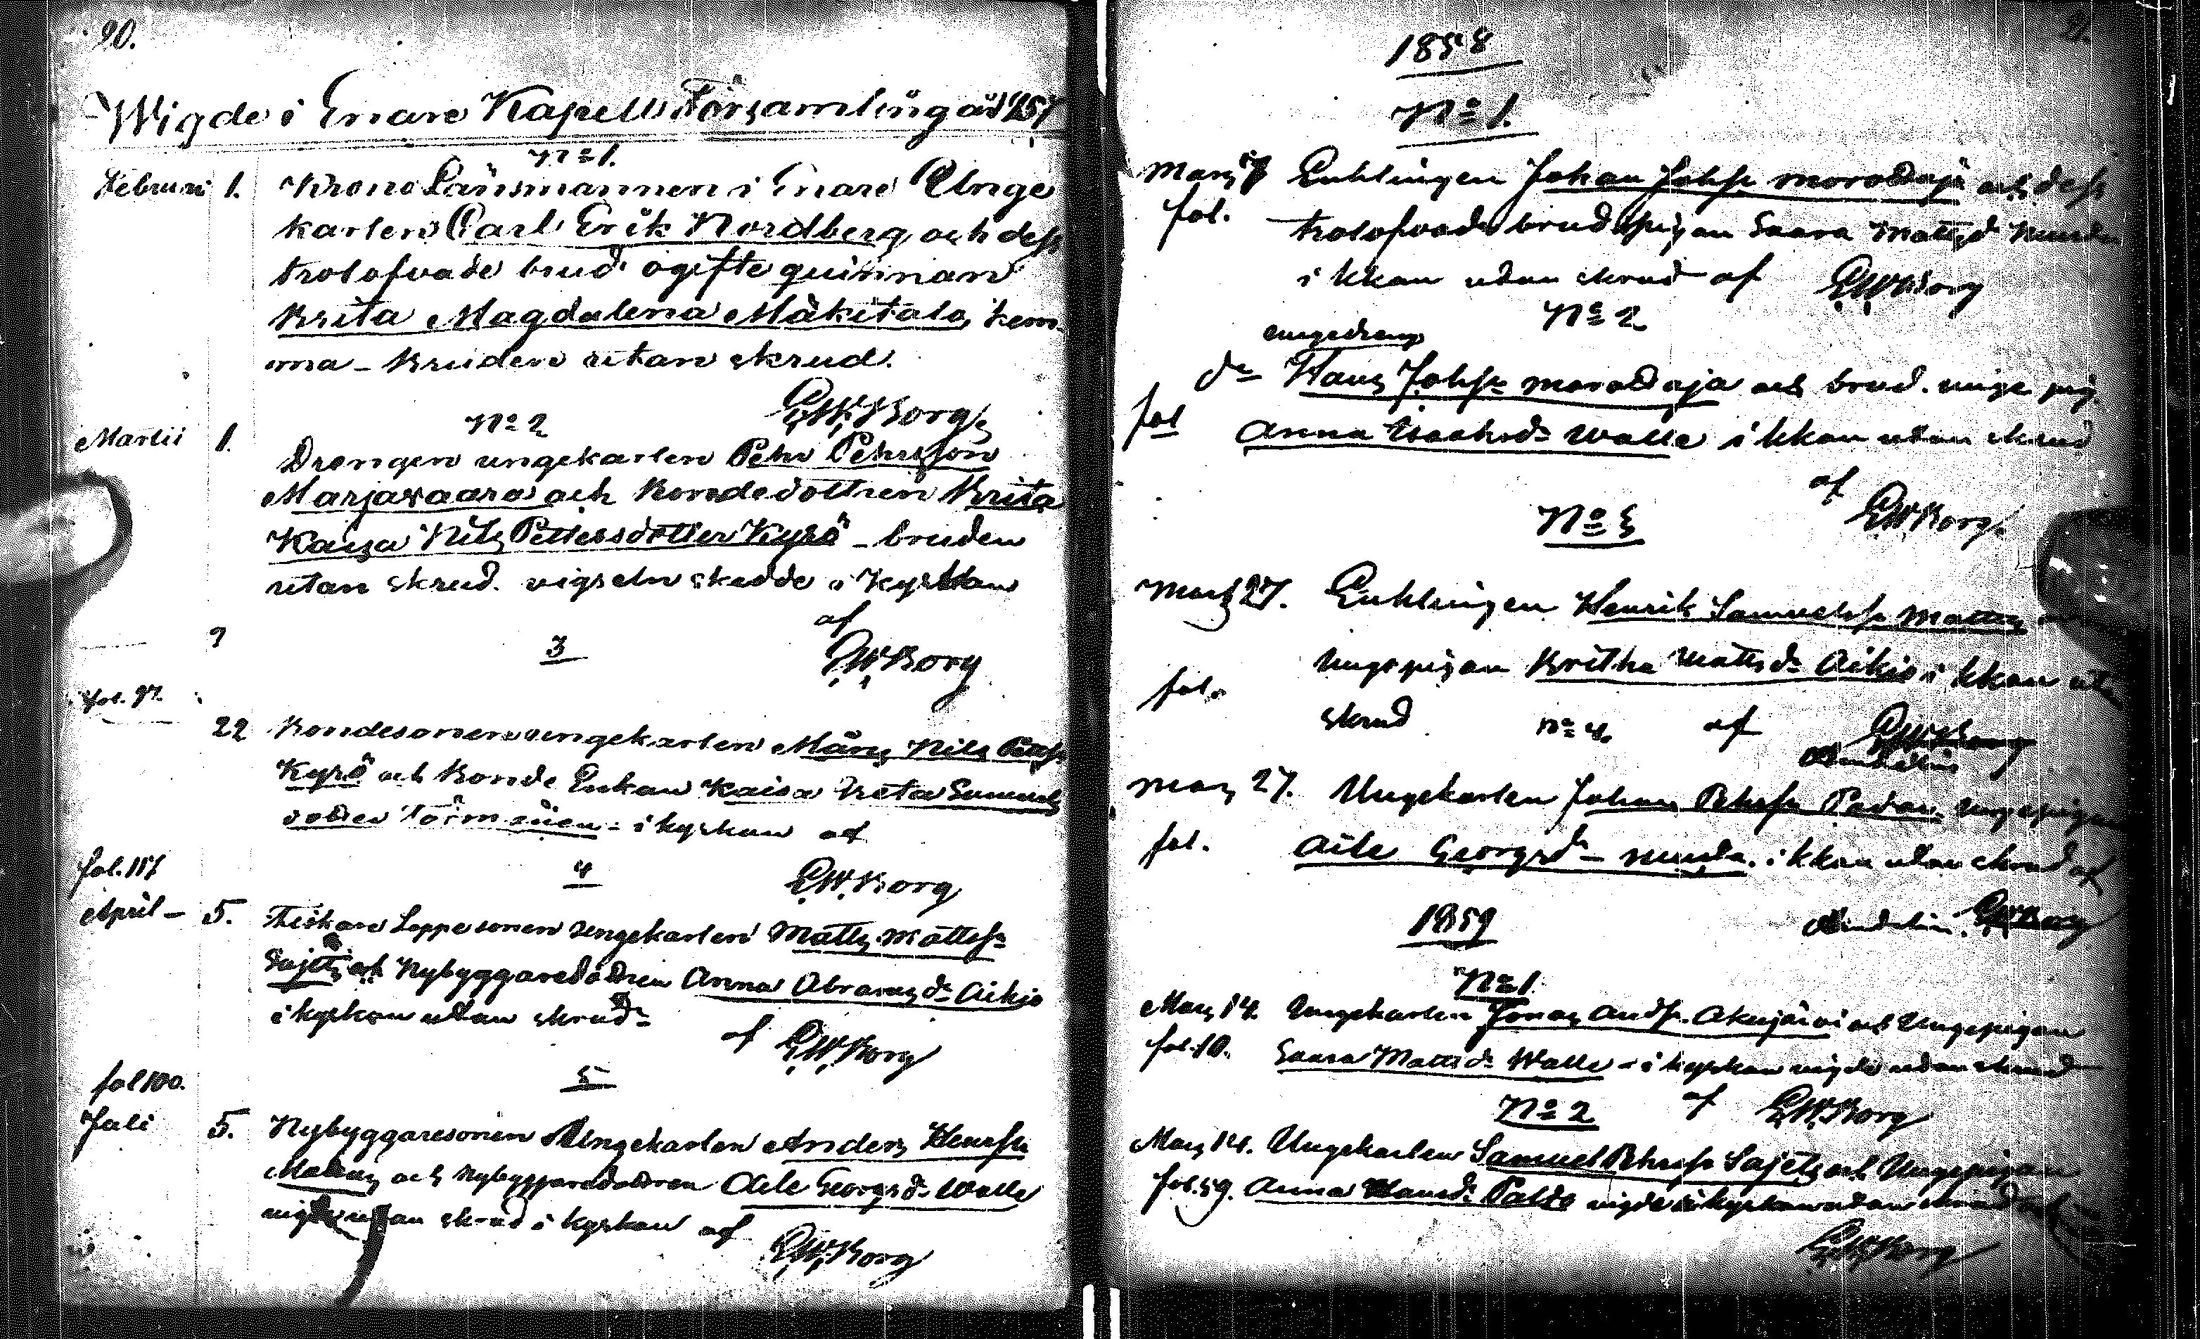 90.
Wigde i Enare Kapells Församling år 1857
No 1.
Februari 1. Krono Länsmannen i Enare Unge
karlen Carl Erik Nordberg och dess
trolofvade brud ogifte quinnan
Brita Magdalena Mäkitalo, hem-
ma - Bruden utan skrud.
EWBorg
No 2
Martii 1. Drengen ungekarlen Pehr Pehrsson
Marjavaara och Bondedottren Brita
Kaisa Nils Pettersdotter Kyrö - bruden
utan skrud. vigseln skedde i Kyrkan
af
?
3
EWBorg
fol. 97.
22 Bondesonen ungekarlen Mårts Nils Petterss
Kyrö och Bonde Enkan Kaisa Greta Samuels
dotter Törmänen - i kyrkan af
fol. 117
4
EWBorg
April - 5. Fiskare Lappsonen ungekarlen Matts Mattss
Sajets och Nybyggaredottren Anna Abramsdr Aikio
i kyrkan utan skrud
af EWBorg
fol 100.
5
Juli 5. Nybyggaresonen Ungekarlen Anders Henrss
och Nybyggaredottren Aile Georgsdr Walle
utan skrud i kyrkan af
EWBorg
21.
1858
No 1.
Mars Enklingen Johan Johss Morottaja och dess
fol. trolofvade brud pigan Saara Mattsd
i kkan utan skrud af EWBorg
No 2
ungedreng
dn Hans Johss Morottaja och brud. unge pig
fol Anna Isaksdr Walle i kkan utan skrud
af
EWBorg
No 3
Mars 27. Enklingen Henrik Samuelss Mattus
Ungepigan Britha Mattsdr Aikio i kkan utan
fol.
skrud No 4. af EWBorg
Mars 27. Ungekarlen Johan Pehrss Padar. ungepigan
fol. Aile Georgsdr - . i kkan utan skrud af
1859
EWBorg
No 1
Mars 14. Ungekarlen Jonas Andss. Akujärvi och Ungepigan
fol. 10. Saara Mattsdr Walle - i kyrkan vigde utan skrud
No 2 af EWBorg
Mars 14. Ungekarlen Samuel Pehrss Sajets och Ungepigan
fol. 59. Anna Hansdr Paldo vigde i kyrkan utan skrud af
EWBorg